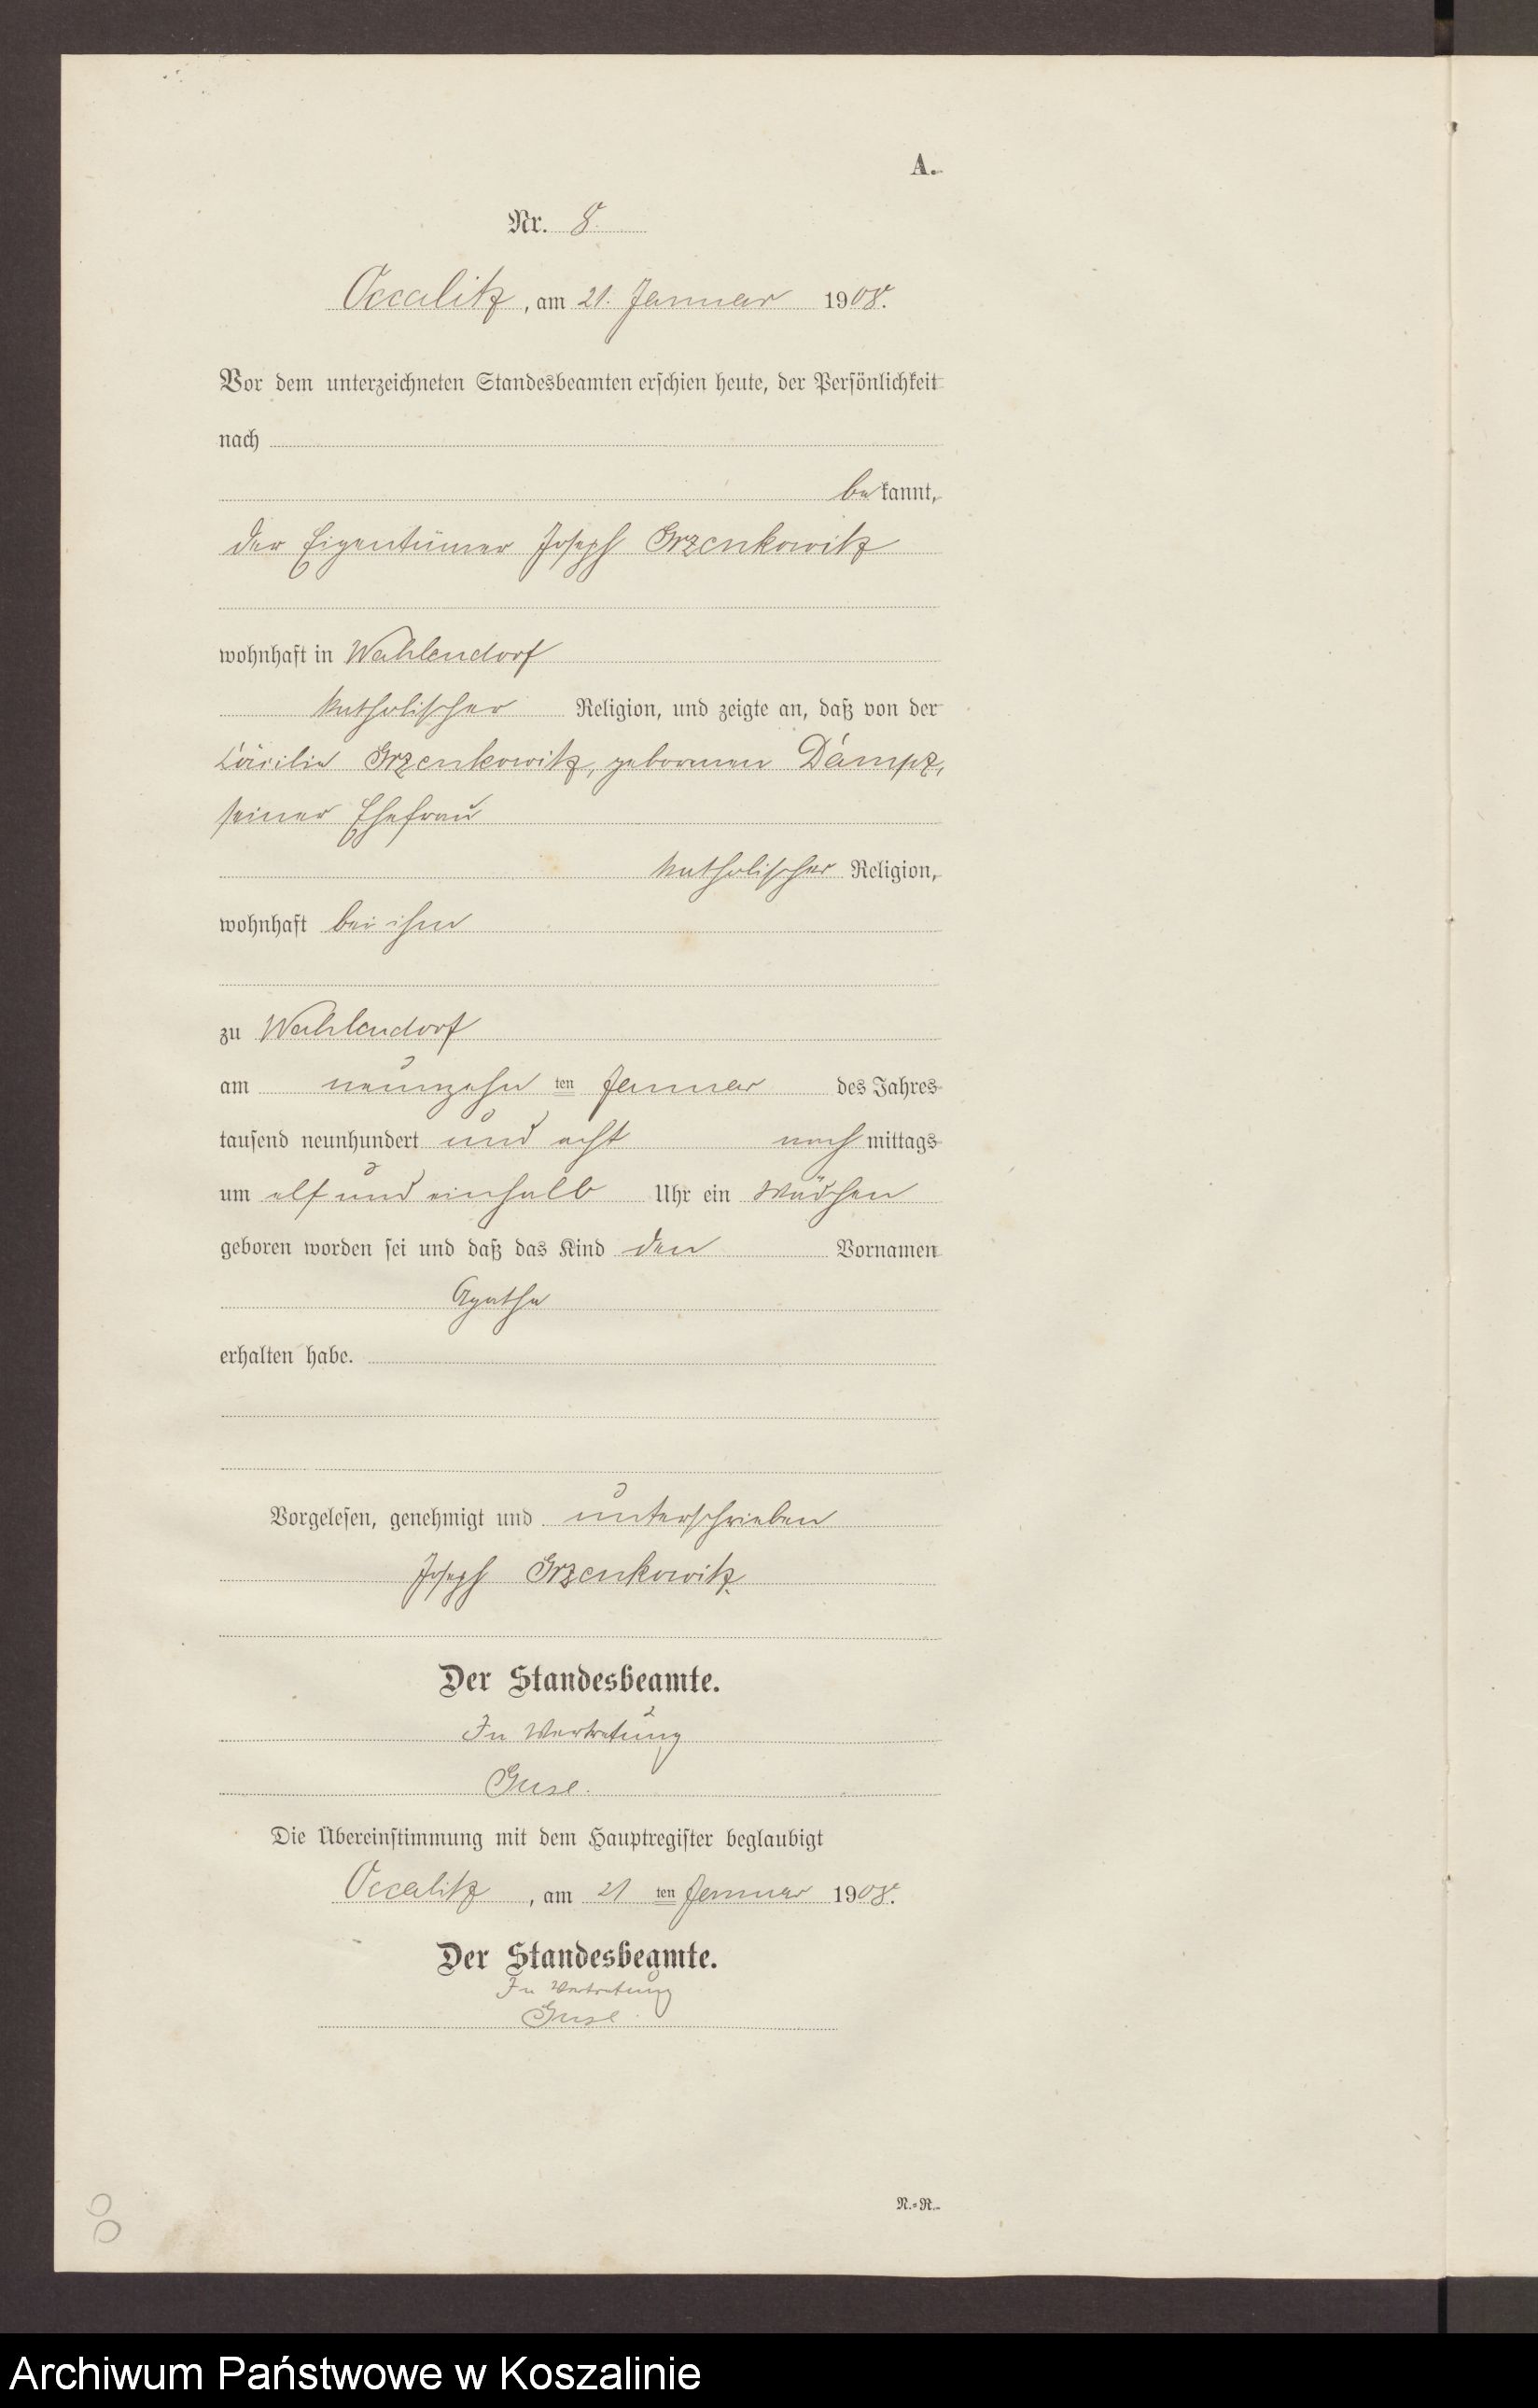 A.
Nr. 8.
Occalitz, am 21. Januar 1908.
Vor dem unterzeichneten Standesbeamten erschien heute, der Persönlichkeit
nach
be kannt,
der Eigentümer Joseph Grzenkowitz
wohnhaft in Wahlendorf
katholischer Religion, und zeigte an, daß von der
Cäcilie Grzenkowitz, geborenen Dampz,
seiner Ehefrau
katholischer Religion,
wohnhaft bei ihm
zu Wahlendorf
am neunzehn ten Januar des Jahres
tausend neunhundert und acht nach mittags
um elf und einhalb Uhr ein Mädchen
geboren worden sei und daß das Kind den Vornamen
Agatha
erhalten habe.
Vorgelesen, genehmigt und unterschrieben
Joseph Grzenkowitz.
Der Standesbeamte.
In Vertretung
Guse.
Die Übereinstimmung mit dem Hauptregister beglaubigt
Occalitz, am 21 ten Januar 1908.
Der Standesbeamte.
In Vertretung
Guse.
N.=R.
Archiwum Państwowe w Koszalinie